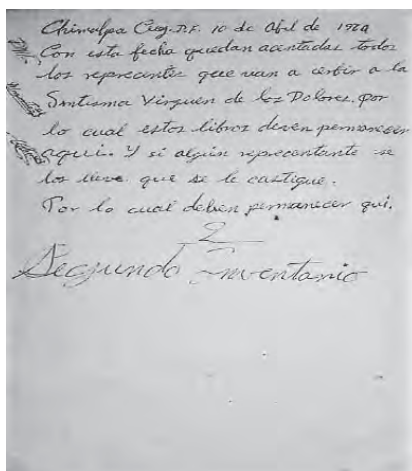 Chimalpa Cuaj. D.F. 10 de Abril de 1920
Con esta fecha quedan acentadas todos
los reprecentes que van a cerbir a la
Santisma Virguen de los Dolores. por
lo cual estos libros deven permanecer
aqui. Y si algún reprecentante se
los lleve que se le castigue.
Por lo cual deben permanecer qui.
2
Segundo Inventario